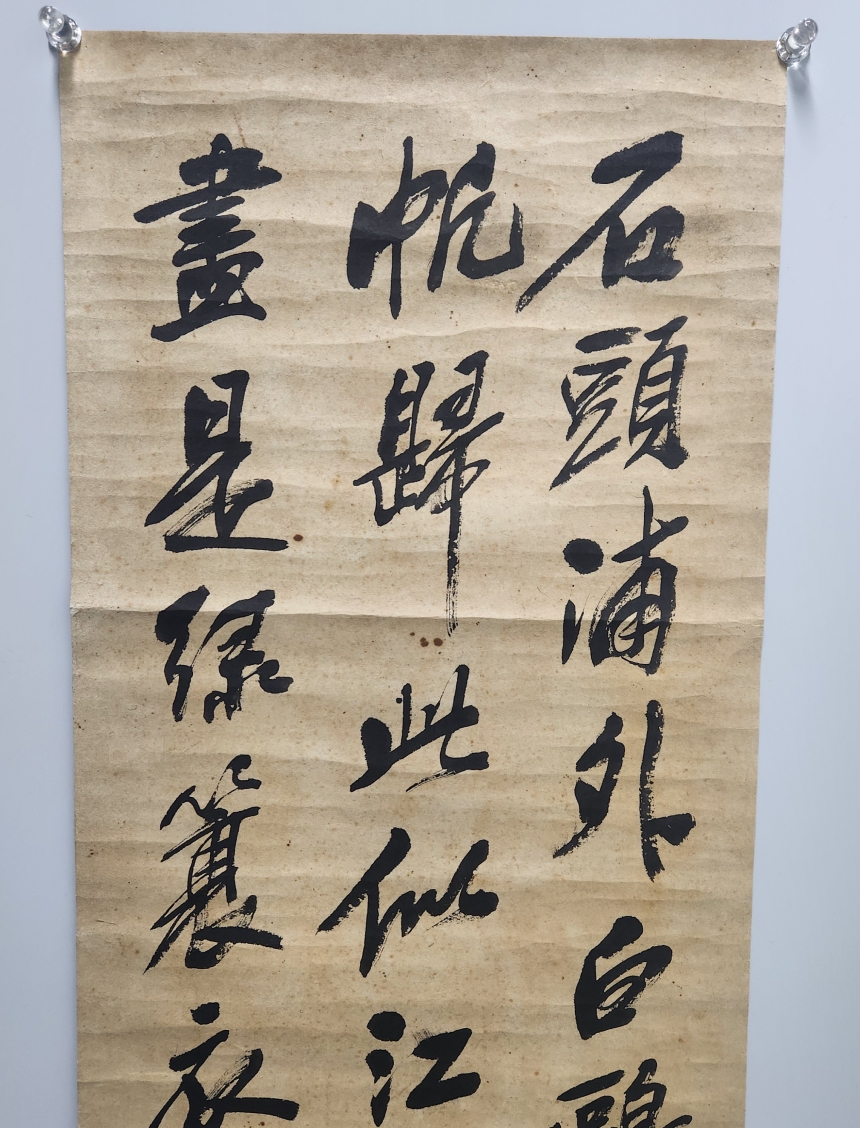 石頭浦外白鷗
帆歸此似江
盡是綠蓑衣